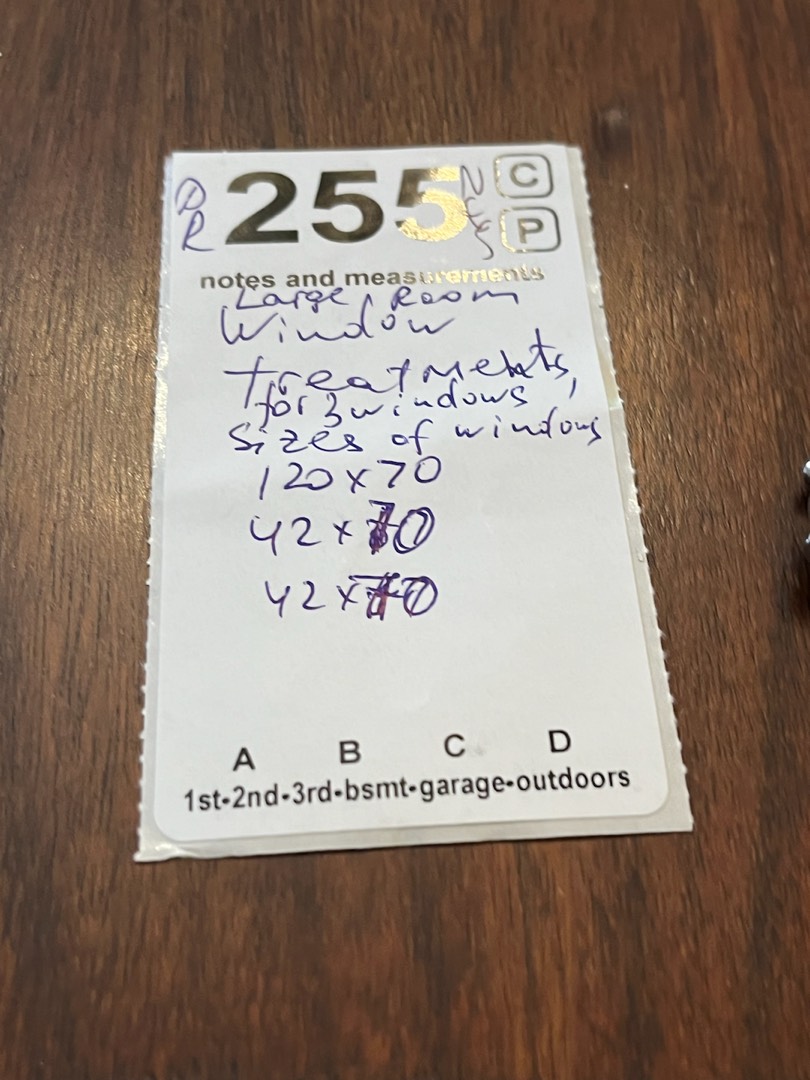 DR 255 C
P
notes and measurements
Large Room
Window
treatments,
for 3 windows
Sizes of windows
120x70
42x70
42x70
A B C D
1st-2nd-3rd-bsmt-garage-outdoors